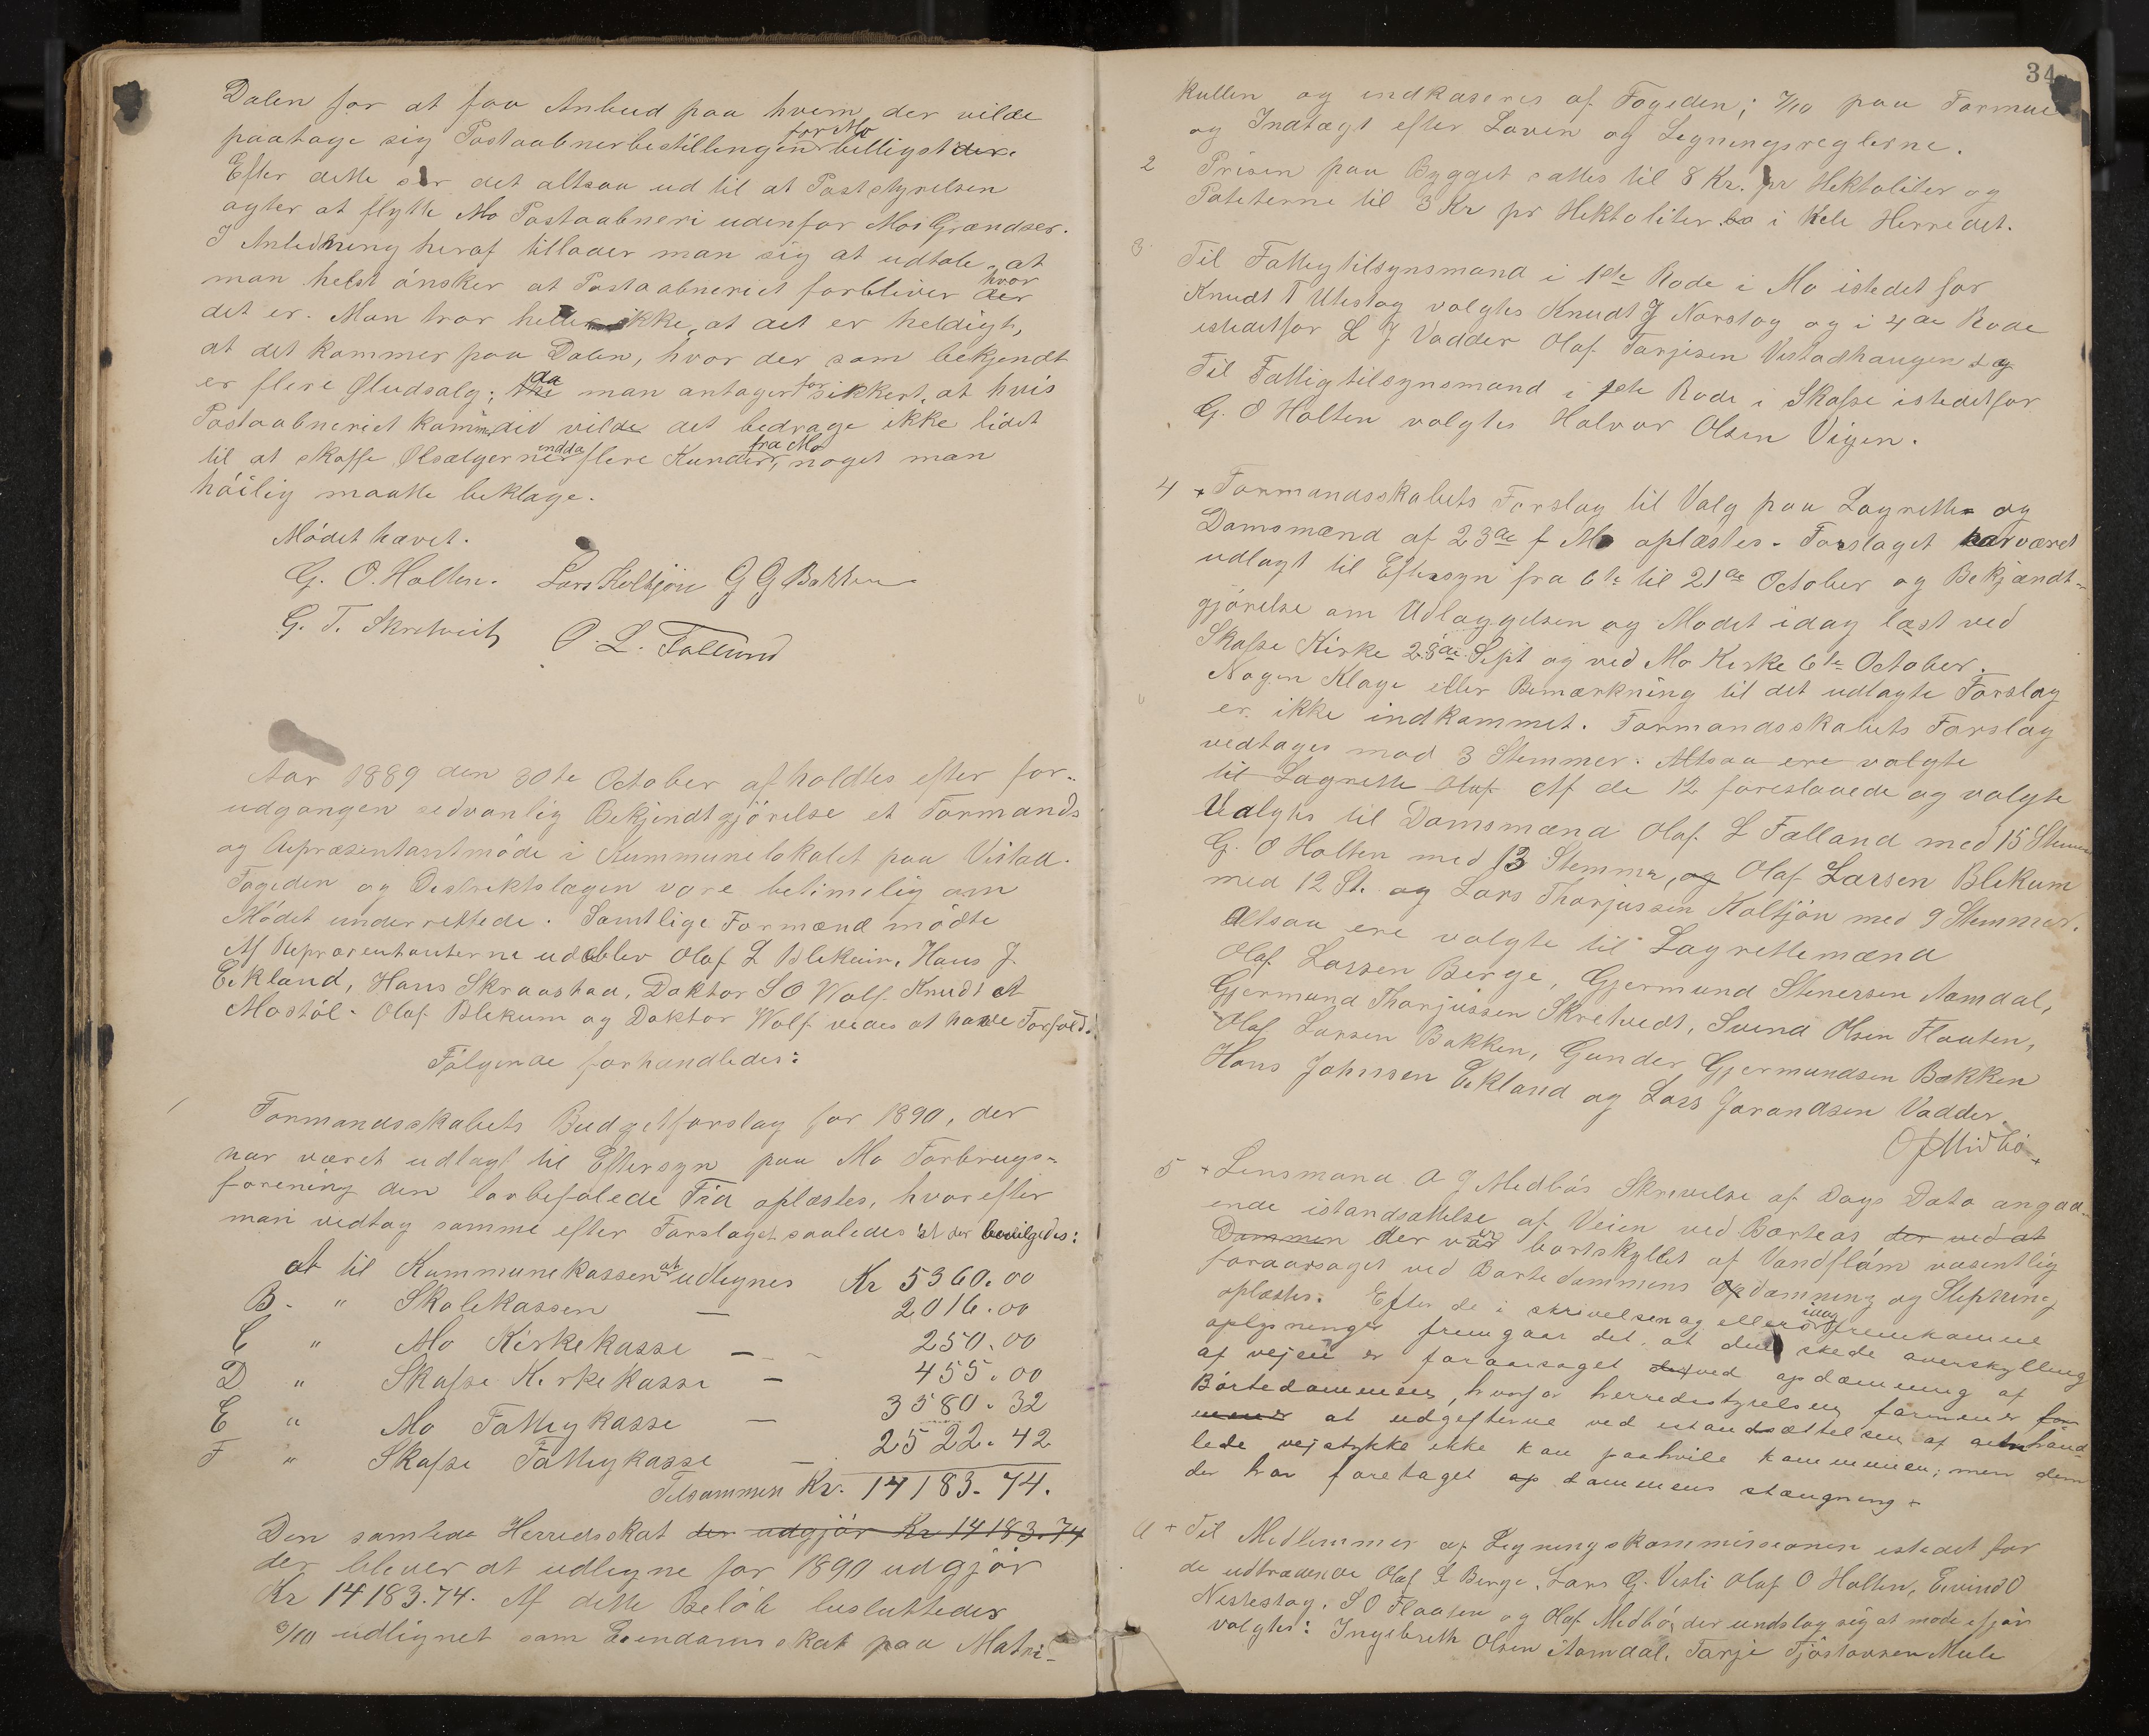 Dalen for at faa Anbud paa hvem der vilde
paatage sig Postaabnerbestillingen for Mo billigst
Efter dette ser det altsaa ud til at Poststyrelsen
agter at flytte Mo Postaabneri udenfor Mos Grændser.
I Anledning heraf tillader man sig at udtale, at
man helst ønsker at Postaabneriet forbliver der hvor
det er. Man tror heller ikke, at det er heldigt,
at det kommer paa Dalen, hvor der som bekjendt
er flere Øludsalg; da man antager for sikkert, at hvis
Postaabneriet kom did vilde det bedrage ikke lidet
til at skaffe Ølsælgerne endda flere Kunder fra Mo, noget man
høilig maatte beklage.
Mødet hævet.
G. O. Holten. Lars Holtjøn G G Bakken
G. T. Skretveit O. L. Falland
Aar 1889 den 30te October afholdtes efter for-
udgangen sedvanlig Bekjendtgjørelse et Formands
og Repræsentantmøde i Kummunelokalet paa Vistad.
Fogeden og Destriktslægen vare betimelig om
Mødet underrettede. Samtlige Formænd mødte
Af Repræsentanterne udeblev Olaf L Blekum, Hans J
Eekland, Hans Skraastad, Doktor S O Wolf. Knudt A
Mostøl. Olaf Blekum og Doktor Wolf vides at have Forfald.
Følgende forhandledes:
1 Formandsskabets Budgetforslag for 1890, der
har været udlagt til Eftersyn paa Mo Forbrugs-
forening den lovbefalede Tid oplæstes, hvorefter
man vedtog samme efter Forslaget saaledes at der bevilgedes:
At til Kummunekassen at udlignes Kr 5360.00
B - " Skolekassen — 2016.00
C " Mo Kirkekasse — 250.00
D " Skafse Kirkekasse — 455.00
E " Mo Fattigkasse — 3580.32
F " Skafse Fattigkasse — 2522.42
Tilsammen Kr. 14183.74.
Den samlede Herredsskat der udgjør Kr 14183.74
der blever at udligne for 1890 udgjør
Kr 14183.74. Af dette Beløb besluttedes
3/10 udlignet som Eiendomsskat paa Matri-
34
kullen og indkaseres af Fogeden; 7/10 paa Formue
og Indtægt efter Loven og Legningsreglerne.
2 Prisen paa Bygget sattes til 8 Kr. pr Hektoliter og
Poteterne til 3 Kr pr Hektoliter i hele Herredet.
3 Til Fattigtilsynsmand i 1ste Rode i Mo istedet for
Knudt T Utistog valgtes Knudt J Norstog og i 4de Rode
istedetfor L J Vadder Olaf Tarjesen Vistadhaugen og
Til Fattigtilsynsmand i 1ste Rode i Skafse istedetfor
G. O Holten valgtes Halvor Olsen Vigen.
4 + Formandsskabets Forslag til Valg paa Lagrette- og
Domsmænd af 23de f M oplæstes. Forslaget har været
udlagt til Eftersyn fra 6te til 21de October og Bekjændt-
gjørelse om Udlæggelsen og Mødet idag læst ved
Skafse Kirke 28de Sept og ved Mo Kirke 6te October.
Nogen Klage eller Bemærkning til det udlagte Forslag
er ikke indkommet. Formandsskabets Forslag
vedtages mod 3 Stemmer. Altsaa ere valgte
til Lagrette Olaf Af de 12 foreslaaede og valgte
Valgtes til Domsmænd Olaf L Falland med 15 Stemmer
G. O Holten med 13 Stemmer, og Olaf Larsen Blekum
med 12 St. og Lars Thorjussen Holtjøn med 9 Stemmer.
Altsaa ere valgte til Lagrettemænd
Olaf Larsen Berge, Gjermund Stenersen Aamdal,
Gjermund Thorjussen Skretvedt, Svend Olsen Flaaten,
Olaf Larsen Bakken, Gunder Gjermundsen Bakken
Hans Johnsen Eekland og Lars Jorandsen Vadder.
O J Midbø
5 + Lensmand O J Medbøs Skrivelse af Dags Dato angaa-
ende istandsættelse af Veien ved Borteas der ved at
Dammen der var er bortskyllet af Vandflom væsentlig
foraarsaget ved Børtedammens Opdæmning og Slepning
oplæstes. Efter de i skrivelsen og ellers idag fremkomne
oplysninger fremgaar det, at den skede overskylling
af vejen er foraarsaget ved opdæmning af
Børtedammen, hvorfor herredsstyrelsen formener
at udgifterne ved istandsættelsen af omhand-
lede vejstykke ikke kan paahvile kommunen; men dem
der har foretaget dammens stængning +
6 + Til Medlemmer af Legningskommissionen istedet for
de udtrædende Olaf L Berge, Lars G. Vesli Olaf O Holten, Eivind O
Nistestog, S O Flaaten og Olaf Medbø, der undslog sig at møde
valgtes: Ingebreth Olsen Aamdal, Tarje Tjøstovsen Mule